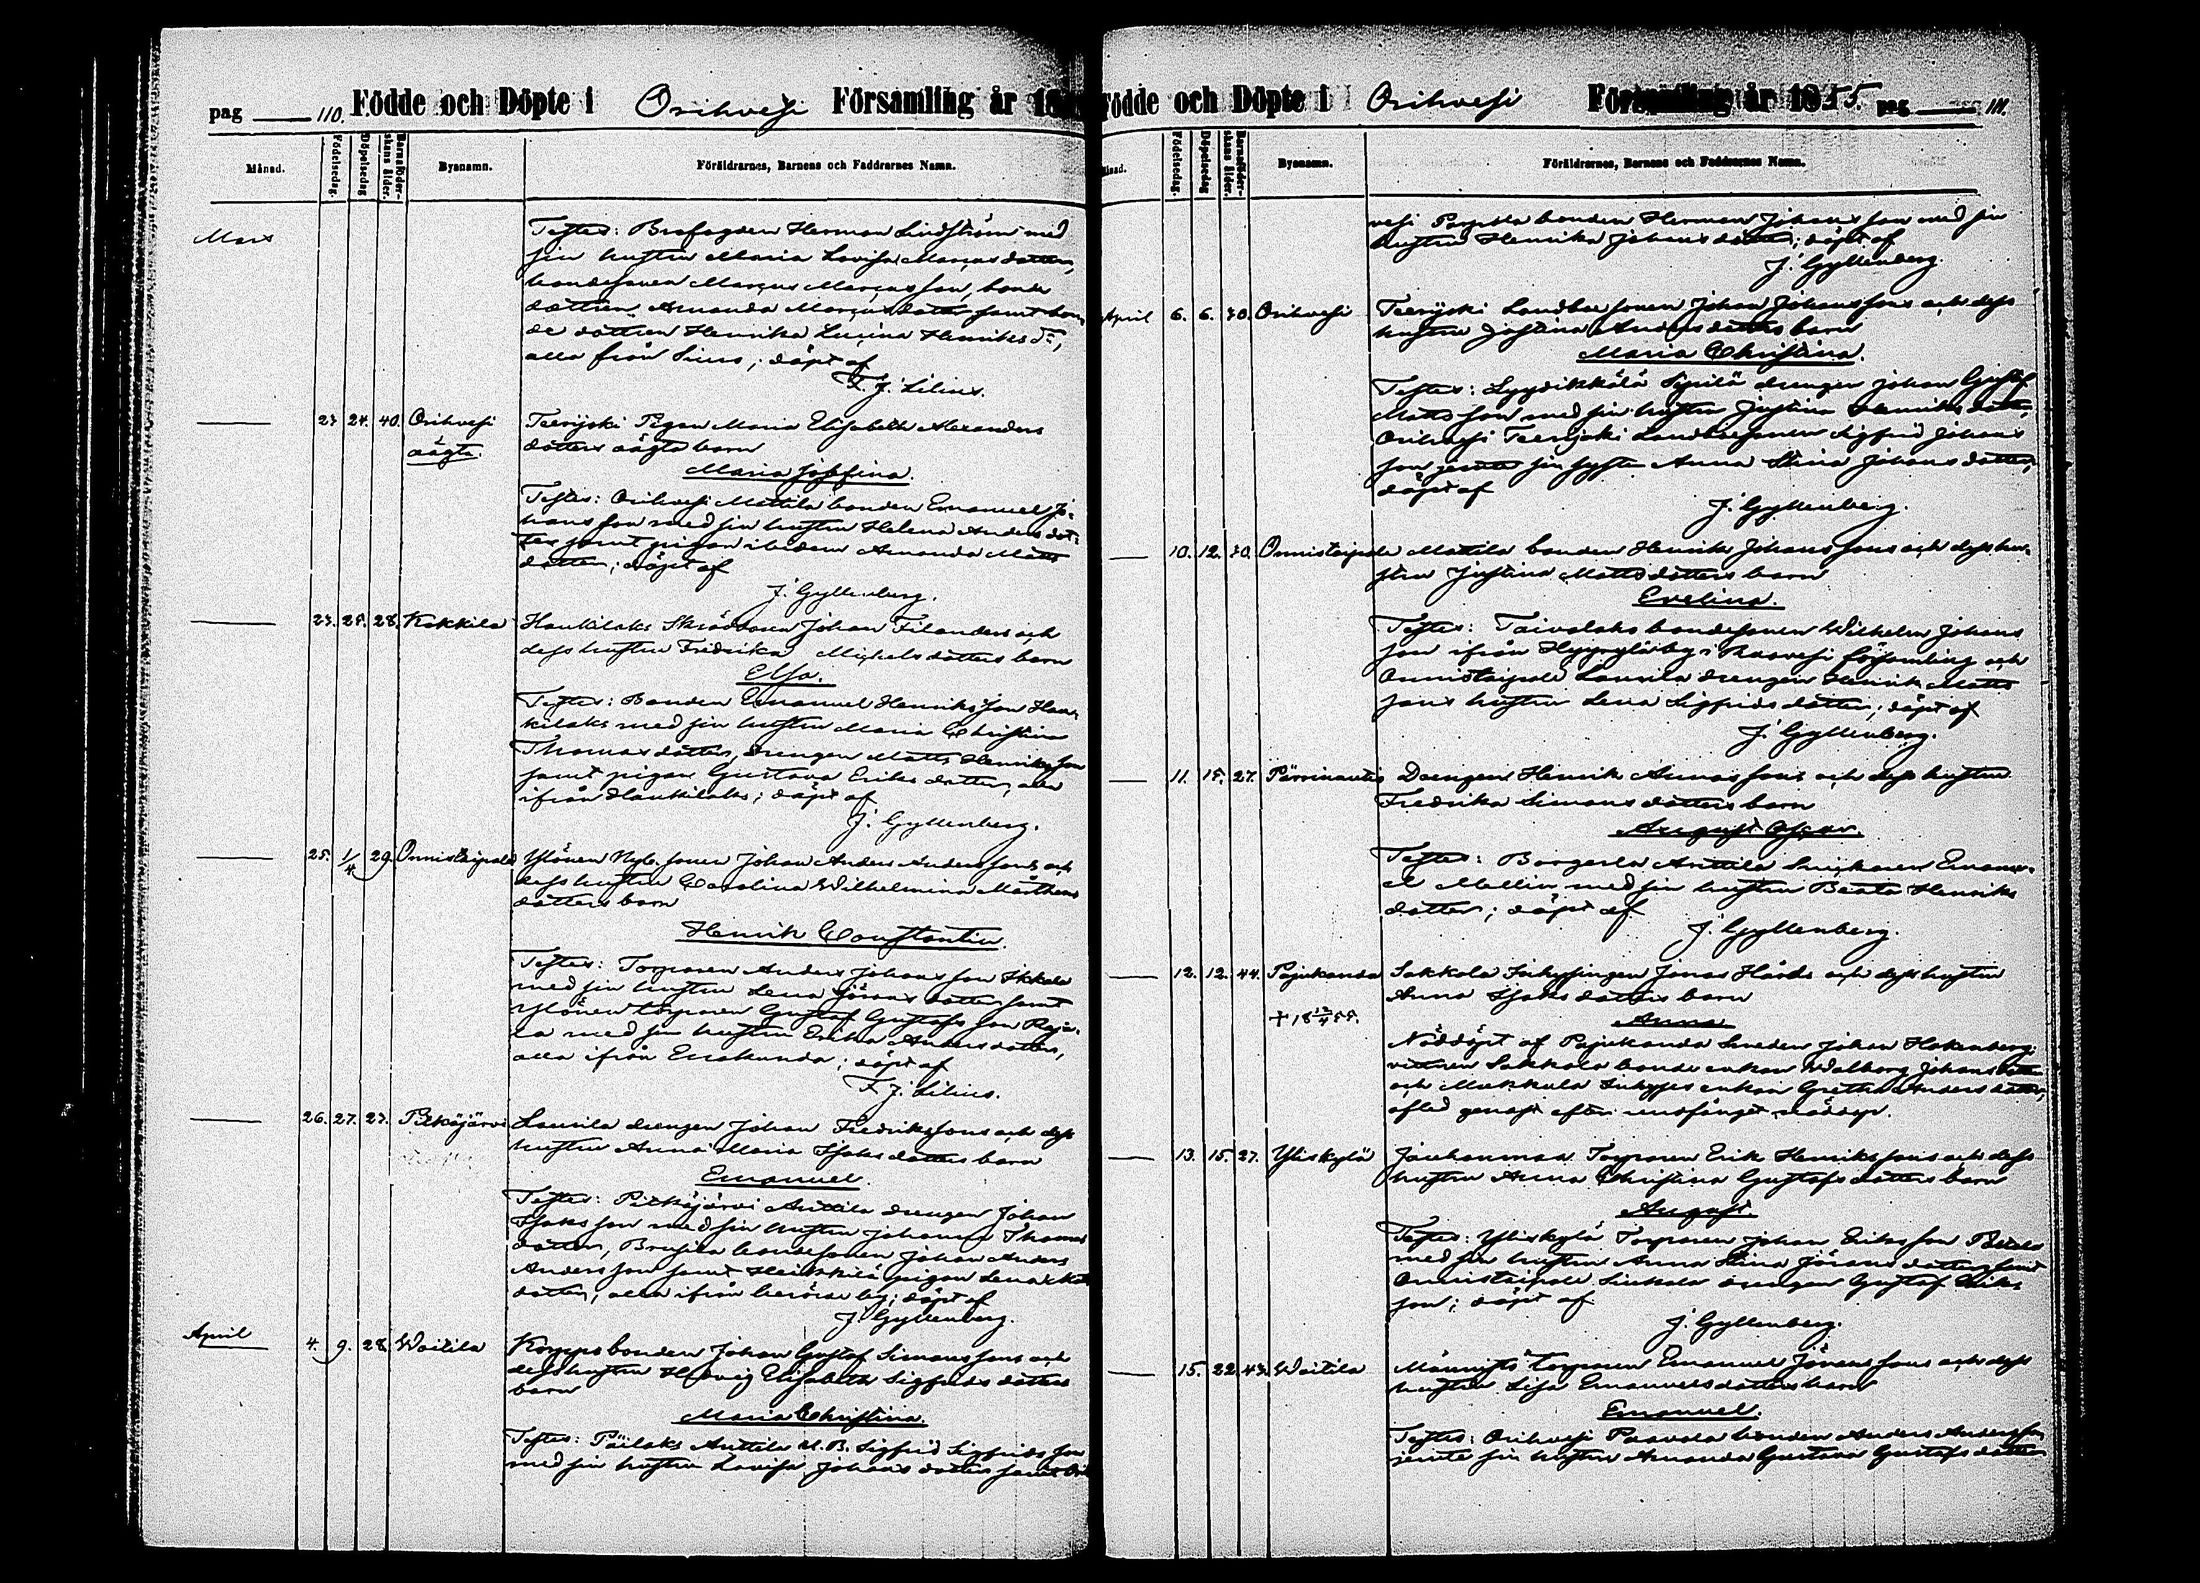 pag 110. Födde och Döpte i Orihvesi Församling år 18
Månad. Födelsedag. Döpelsedag Barnaföderskans ålder. Bysnamn. Föräldrarnes, Barnens och Faddrarnes Namn.
Mars
Testes: Herman Lindström med
sin hustru Maria Lovisa Marcus dotter,
bondesonen Marcus Marcusson, bonde
dottren Amanda Marcus dotter samt bon
de dottren Henrika Lucina Henriks dr,
alla från ; döpt af
F. J. Lilius.
23 24. 40. Orihvesi Teerijoki Pigan Maria Elisabeth Alexanders
oägta. dotters oägta barn
Maria Josefina.
Testes: Orihvesi Mattila bonden Emanuel Jo-
hansson med sin hustru Helena Anders dot-
ter samt pigan ibidem Amanda Matts
dotter; döpt af
J. Gyllenberg.
23. 25. 28. Kokkila Haukilaks Johan Filanders och
dess hustru Fredrika Michels dotters barn
Elsa.
Testes: Bonden Emanuel Henriksson Hau-
kilaks med sin hustru Maria Christina
Thomas dotter, drengen Matts Henriksson
samt pigan Gustava Eriks dotter, alla
ifrån Haukilaks; döpt af
J. Gyllenberg.
25. 1/4 29. Onnistaipale Ylönen Nyb. sonen Johan Anders Anderssons och
dess hustru Carolina Wilhelmina Mårtens
dotters barn
Henrik Constantin.
Testes: Torparen Anders Johansson
med sin hustru Lena Jörans dotter samt
Ylönen torparen Gustaf Gustafsson
med sin hustru Erika Anders dotter,
alla ifrån Enokunda; döpt af
F. J. Lilius.
26. 27. 27. Pitkäjärvi Laurila drengen Johan Fredrikssons och dess
hustru Anna Maria Isaks dotters barn
Emanuel.
Testes: Pitkäjärvi Anttila drengen Johan
Isaksson med sin hustru Johanna Thomas
dotter, bondesonen Johan Anders
Andersson samt Heikkilä pigan Lena
dotter, alla ifrån berörde by; döpt af
J. Gyllenberg.
April 4. 9. 28. Woitila Korppi bonden Johan Gustaf Simonssons och
dess hustru Hedvig Elisabeth Sigfrids dotters
barn
Maria Christina.
Testes: Päilaks Anttila Sigfrid Sigfridsson
med sin hustru Lovisa Johans dotter samt
Födde och Döpte i Orihvesi Församling år 1855. pag 111.
Månad. Födelsedag. Döpelsedag Barnaföderskans ålder. Bysnamn. Föräldrarnes, Barnens och Faddrarnes Namn.
vesi bonden Herman Johansson med sin
hustru Henrika Johans dotter; döpt af
J. Gyllenberg.
April 6. 6. 30. Orihvesi Teerijoki Landbosonen Johan Johanssons och dess
hustru Justina Anders dotters barn
Maria Christina.
Testes: Lyydikkälä Seppälä drengen Johan Gustaf
Mattsson med sin hustru Justina Henriks dotter,
Orihvesi Teerijoki Landbosonen Sigfrid Johans
son jemte sin syster Anna Stina Johans dotter,
döpt af
J. Gyllenberg.
10. 12. 30. Onnistaipale Mattila bonden Henrik Johanssons och dess hu-
stru Justina Matts dotters barn
Evelina.
Testes: Taivalaks bondesonen Wilhelm Johans
son ifrån by i församling och
Onnistaipale Laurila drengen Henrik Matts
sons hustru Lena Sigfrids dotter; döpt af
J. Gyllenberg.
11. 15. 27. Drengen Henrik Annassons och dess hustru
Fredrika Simons dotters barn
August Oscar.
Testes: Anttila Snickaren Emanu-
el Mellin med sin hustru Beata Henriks
dotter; döpt af
J. Gyllenberg.
12. 12. 44. Pajukanda Sakkola Inhysingen Jonas Hårds och dess hustru
Anna Isaks dotters barn
+ 18 12/4 55. Anna
Nöddöpt af Pajukanda Smeden Johan Hakenberg,
vittnen Sakkola bonde enkan Walborg Johans dotter
och Mukkula Inhyses enkan Gretha Anders dotter,
afled genast efter undfånget nöddop.
13. 15. 27. Yliskylä Torparen Erik Henrikssons och dess
hustru Anna Christina Gustafs dotters barn
August.
Testes: Yliskylä Torparen Johan Eriksson
med sin hustru Anna Stina Jörans dotter samt
Onnistaipale drengen Gustaf Eriks
son; döpt af
J. Gyllenberg.
15. 22. 43. Woitila Männistö torparen Emanuel Jöranssons och dess
hustru Lisa Emanuels dotters barn
Emanuel.
Testes: Orihvesi Paavola bonden Anders Andersson
jemte sin hustru Amanda Gustava Gustafs dotter